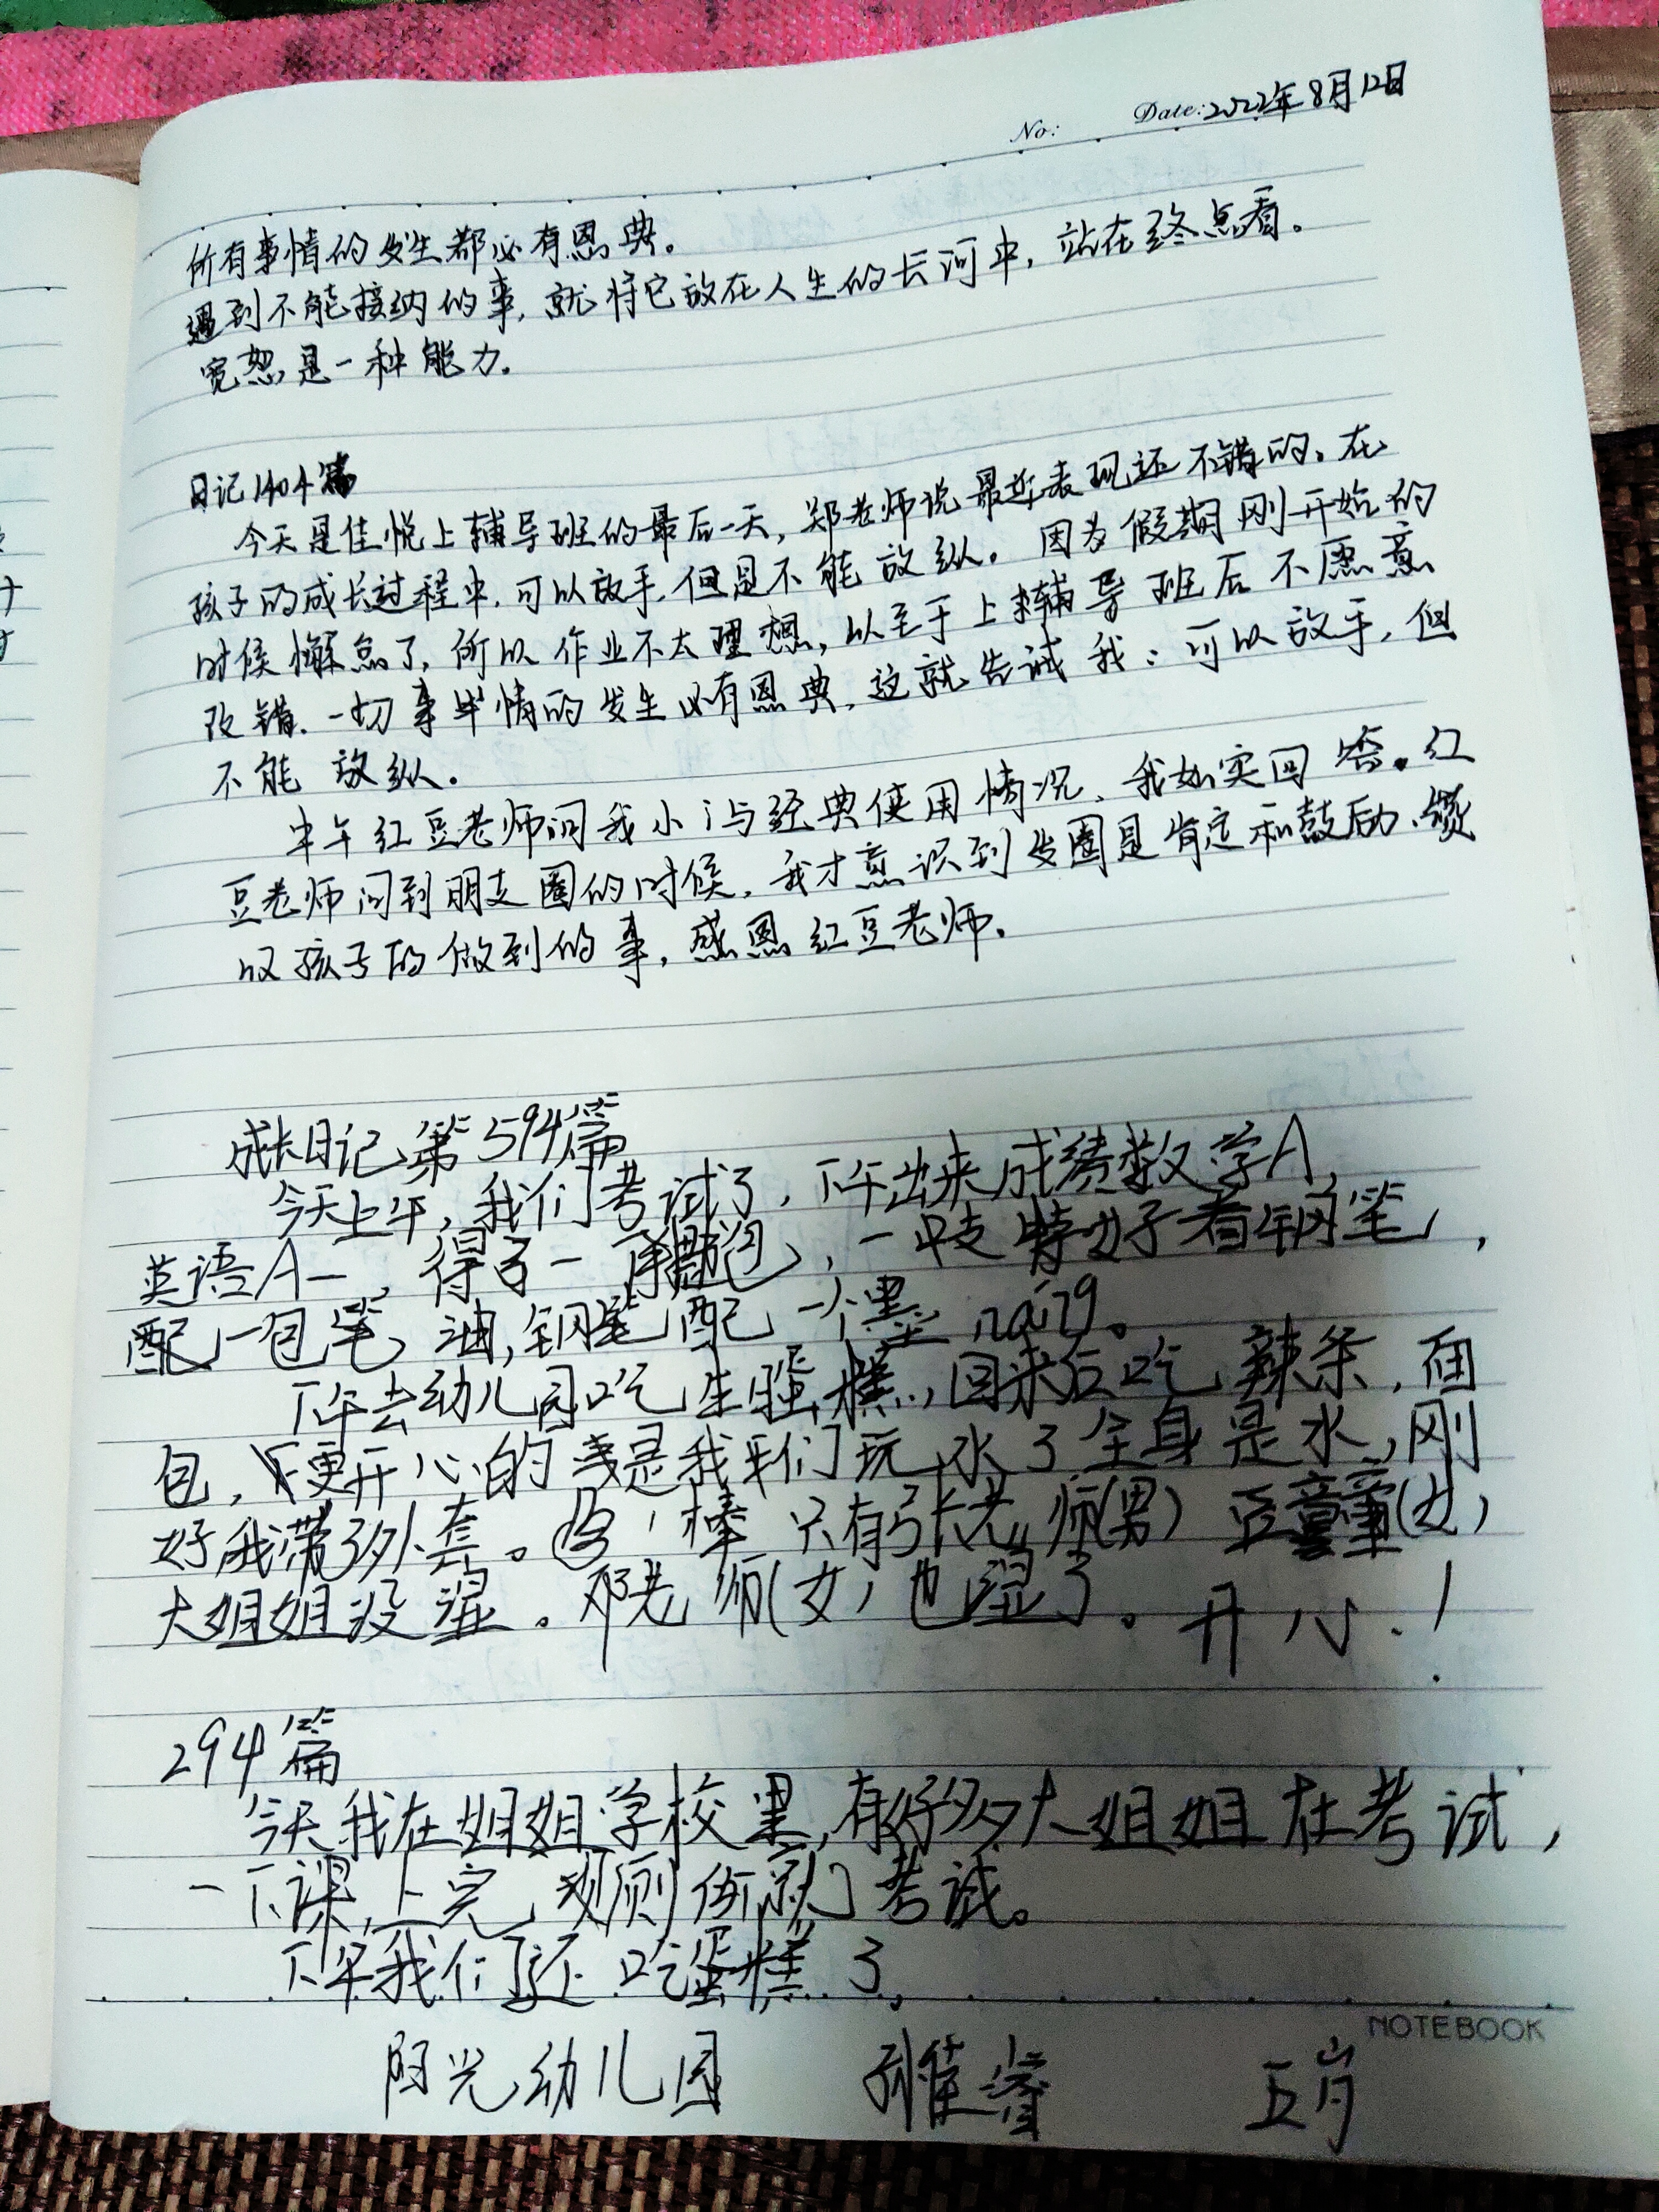 No:
Date: 2022年8月12日
所有事情的发生都必有恩典。
遇到不能接纳的事,就将它放在人生的长河中,站在终点看。
宽恕是一种能力。
日记1404篇
今天是佳悦上辅导班的最后一天,郑老师说最近表现还不错的。在
孩子的成长过程中,可以放手,但是不能放纵。因为假期刚开始的
时候懈怠了,所以作业不太理想,以至于上辅导班后不愿意
改错.一切事情的发生必有恩典,这就告诫我:可以放手,但
不能放纵。
中午红豆老师问我小i与经典使用情况,我如实回答。红
豆老师问到朋友圈的时候,我才意识到发圈是肯定和鼓励、
叹孩子的做到的事,感恩红豆老师.
成长日记第594篇
今天上午,我们考试了,下午出来成绩数学A,
英语A-,得了一,一支特好看钢笔,
配一包笔油,钢笔配一个墨náng。
下午去幼儿园吃生蛋糕,回来后吃辣条,面
包,更开心的是我们玩水了全身是水,刚
好我带了外套。,棒 只有张老师(男) 童童(女)
大姐姐没湿。邓老师(女)也湿了。开心!
294篇
今天我在姐姐学校里,有好多大姐姐在考试,
一下课,上完就考试。
下午我们还吃蛋糕了,
NOTEBOOK
阳光幼儿园 孙佳睿 五岁